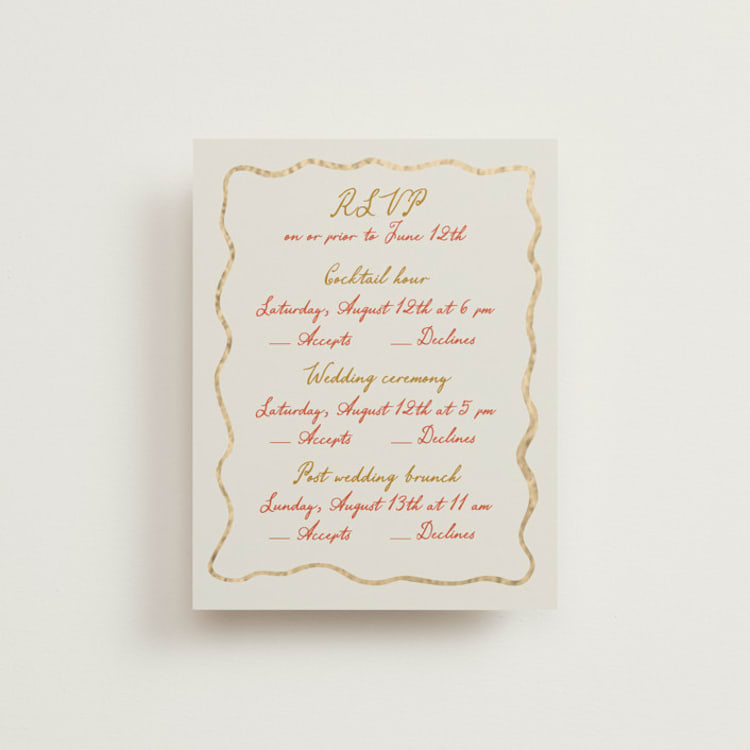 RSVP
on or prior to June 12th
Cocktail hour
Saturday, August 12th at 6 pm
__ Accepts __ Declines
Wedding ceremony
Saturday, August 12th at 5 pm
__ Accepts __ Declines
Post wedding brunch
Sunday, August 13th at 11 am
__ Accepts __ Declines